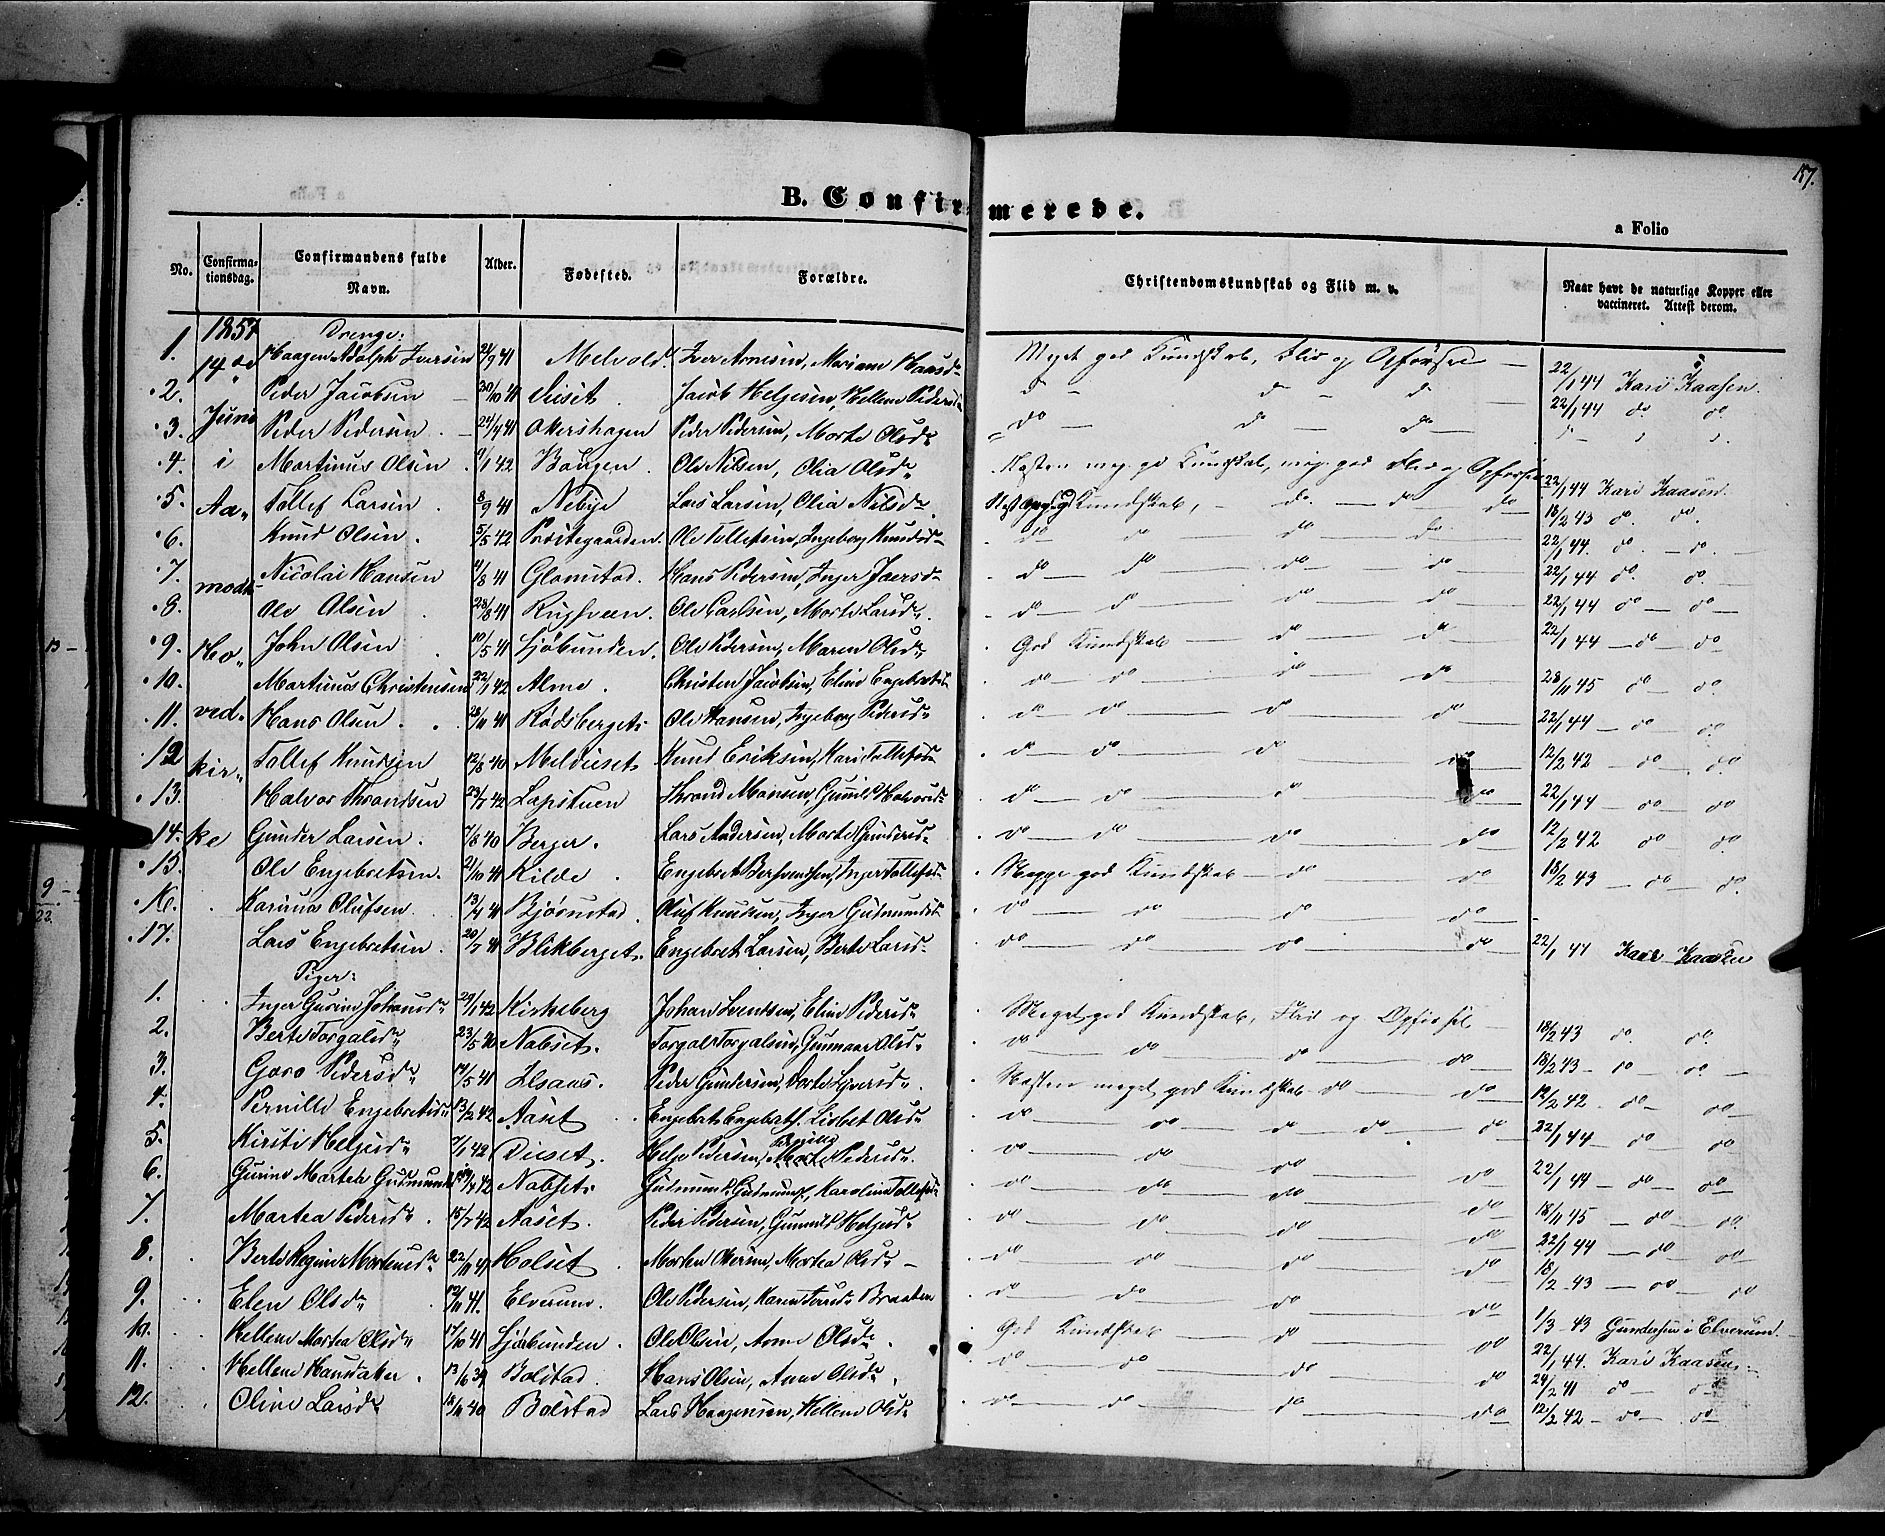 187.
B. Confirmerede.
a Folio
No. Confirmationsdag. Confirmandens fulde Navn. Alder. Fødested. Forældre. Christendomskundskab og Flid m. v. Naar havt de naturlige Kopper eller vaccineret. Attest derom.
1857 Drenge:
1. 14de Haagen Adolph Iversen 9 41 Melvold. Iver Arnesen, Mariam Haasd. Meget god Kundskab, Flid og Opførsel 22/1 44 Kari Kaasen.
2. Peder Jacobsen 30/10 41 Diset Jacob Helgesen, Hellene Pedersd. do do do 22/1 44 do do
3. Juni Peder Pedersen 24/4 41 Akershagen Peder Pedersen, Marte Olsd. do do do
4. i Martinus Olsen 1 42 Baugen Ole Nilsen, Olia Olsd. Næsten meg. gd Kundskab, meg. god Flid og Opførsel 22/1 44 Kari Kaasen
5. Aa- Tollef Larsen 8/9 41 Nebye Lars Larsen, Olia Nilsd. Kundskab, do do do 18/2 43 do. do.
6. Knud Olsen 5/5 42 Præstegaarden Ole Tollefsen, Ingeborg Knudsd. do do do do 22/1 44. do. do.
7. modts Nicolai Hansen 8 41 Glomstad. Hans Pedersen, Inger Iversd. do do do do 22/1 44 do. do.
8. Ole Olsen 28/8 41 Rughveen Ole Carlsen, Marte Larsd. do do do do 22/1 44 do do
9. Ho- John Olsen 10/5 41 Sjøbunden. Ole Pedersen, Maren Olsd. God Kundskab do do 22/1 44 do do
10. Martinus Christensen 22/1 42 Alme. Christen Jacobsen, Eline Engebretsd. do do do do 28/11 45 do do
11. ved- Hans Olsen 28/11 41 Rødsberget Ole Hansen, Ingeborg Pedersd. do do do do 22/1 44 do do
12 kir- Tollef Knudsen 12/8 40 Meldieset Knud Eriksen, Kari Tollefsd. do do do do 12/2 42 do do
13. Halvor Thrandsen 23/7 42 Lapstuen Thrand Monsen, Gunild Halvorsd. do do do do 22/1 44 do do
14. ke Gunder Larsen 7/8 40 Berger. Lars Andersen, Marte Gundersd. do do do do 12/2 42 do do
15. Ole Engebretsen. 21/10 41 Kilde Engebret Inger Tollefsd. Megge god Kundskab do do 18/2 43 do do
16. Karinus Olufsen 13/4 41 Bjørnstad. Oluf Knudsen, Inger Gudmundsd. do do do do
17. Lars Engebretsen 20/7 41 Blikberget. Engebret Larsen, Berte Larsd. do do do do 22/1 44 Kari Kaasen
Piger:
1. Inger Gurine Johansd. 29/1 42 Kirkeberg Johan Svendsen, Eline Pedersd. Meget god Kundskab, Flid og Opførsel 18/2 43 do. do.
2. Berte Torgalsd. 23/5 40 Nabset. Torgal Torgalsen, Gunnaar Olsd. do do do do 18/2 43 do do
3. Goro Pedersd. 14/5 41 Ilsaas. Peder Gundersen, Dorte Syversd. Næsten meget god Kundskab do do 12/2 42. do do
4. Pernille Engebretsd. 13/2 42 Aaset Engebret Engebretss. Lisbet Olsd. do do do do do 22/1 44 do do
5. Kirsti Helgesd. 1 42 Dieset. Helge Pedersen, Pedersd. do do do do 22/1 44 do do
6. Gurine Martea Gudmunds 4 42 Nabset. Gudmund Gudmunds., Karoline Tollefsd. do do do do 18/11 45 do do
7. Martea Pedersd. 15/7 42 Aaset. Peder Pedersen, Gunnild Helgesd. do do do do 22/1 44 do do
8. Berte Regine Mortensd. 22/11 41 Holset Morten Olersen, Martea Olsd. do do do do 18/2 43 do do
9. Elen Olsd. 12/11 41. Elverum. Ole Pedersen, Karen Iversd. Braaten do do do do 1/3 43 Gundersen i Elverum.
10. Hellene Martea Olsd. 17/10 41 Sjøbunden. Ole Olsen, Anne Olsd. God Kundskab do do 22/1 44. Kari Kaasen
11. Hellene Hansdatter. 13/6 39 Bolstad. Hans Olsen, Anne Olsd. do do do do 24/2 41 do do
12. Oline Larsd. 18/11 40 Bolstad Lars Haagensen, Hellene Olsd. do do do do 12/2 42 do do